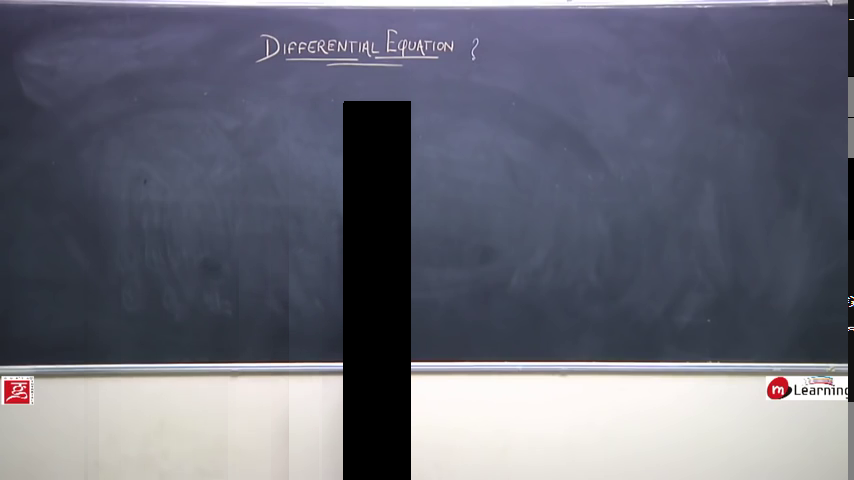 DIFFERENTIAL EQUATION ?
m Learning